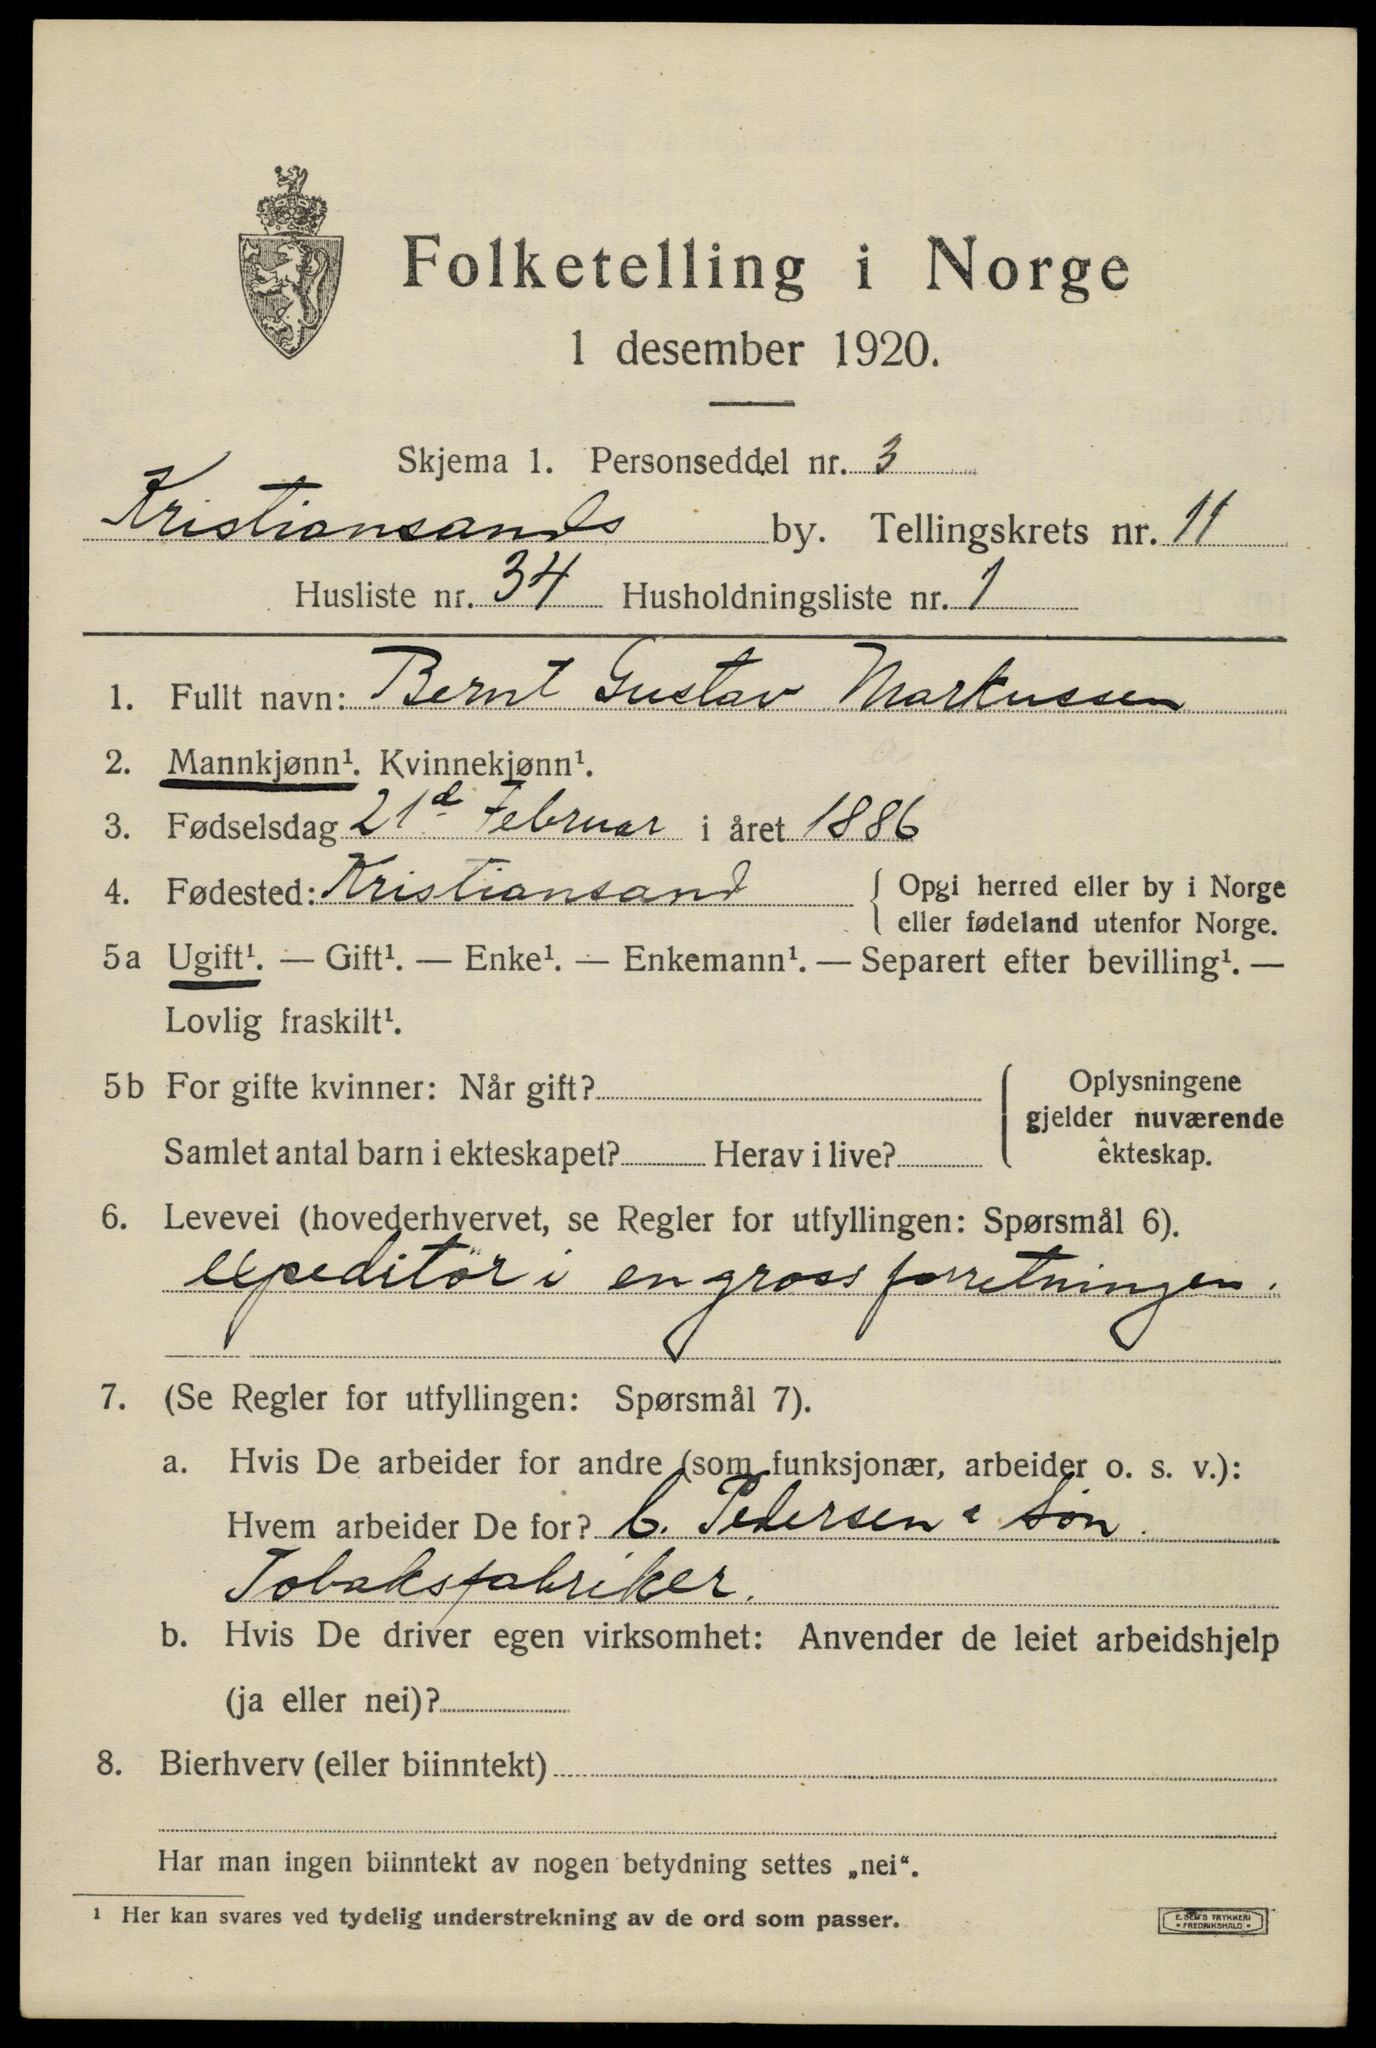 Folketelling i Norge
1 desember 1920.
Skjema 1. Personseddel nr. 3
Kristiansands by. Tellingskrets nr. 11
Husliste nr. 34 Husholdningsliste nr. 1
1. Fullt navn: Bernt Gustav Markussen
2. Mannkjønn¹. Kvinnekjønn¹.
3. Fødselsdag 21d Februar i året 1886
4. Fødested: Kristiansand { Opgi herred eller by i Norge
eller fødeland utenfor Norge.
5a Ugift¹. — Gift¹. — Enke¹. — Enkemann¹. — Separert efter bevilling¹. —
Lovlig fraskilt¹.
5b For gifte kvinner: Når gift?
Samlet antal barn i ekteskapet? Herav i live?
Oplysningene
gjelder nuværende
ekteskap.
6. Levevei (hovederhvervet, se Regler for utfyllingen: Spørsmål 6).
expeditör i en gross forretningen.
7. (Se Regler for utfyllingen: Spørsmål 7).
a. Hvis De arbeider for andre (som funksjonær, arbeider o. s. v.):
Hvem arbeider De for? C. Pedersen & Søn
Tobaksfabriker.
b. Hvis De driver egen virksomhet: Anvender de leiet arbeidshjelp
(ja eller nei)?
8. Bierhverv (eller biinntekt)
Har man ingen biinntekt av nogen betydning settes „nei“.
¹ Her kan svares ved tydelig understrekning av de ord som passer.
E. SEM'S TRYKKERI
• FREDRIKSHALD •